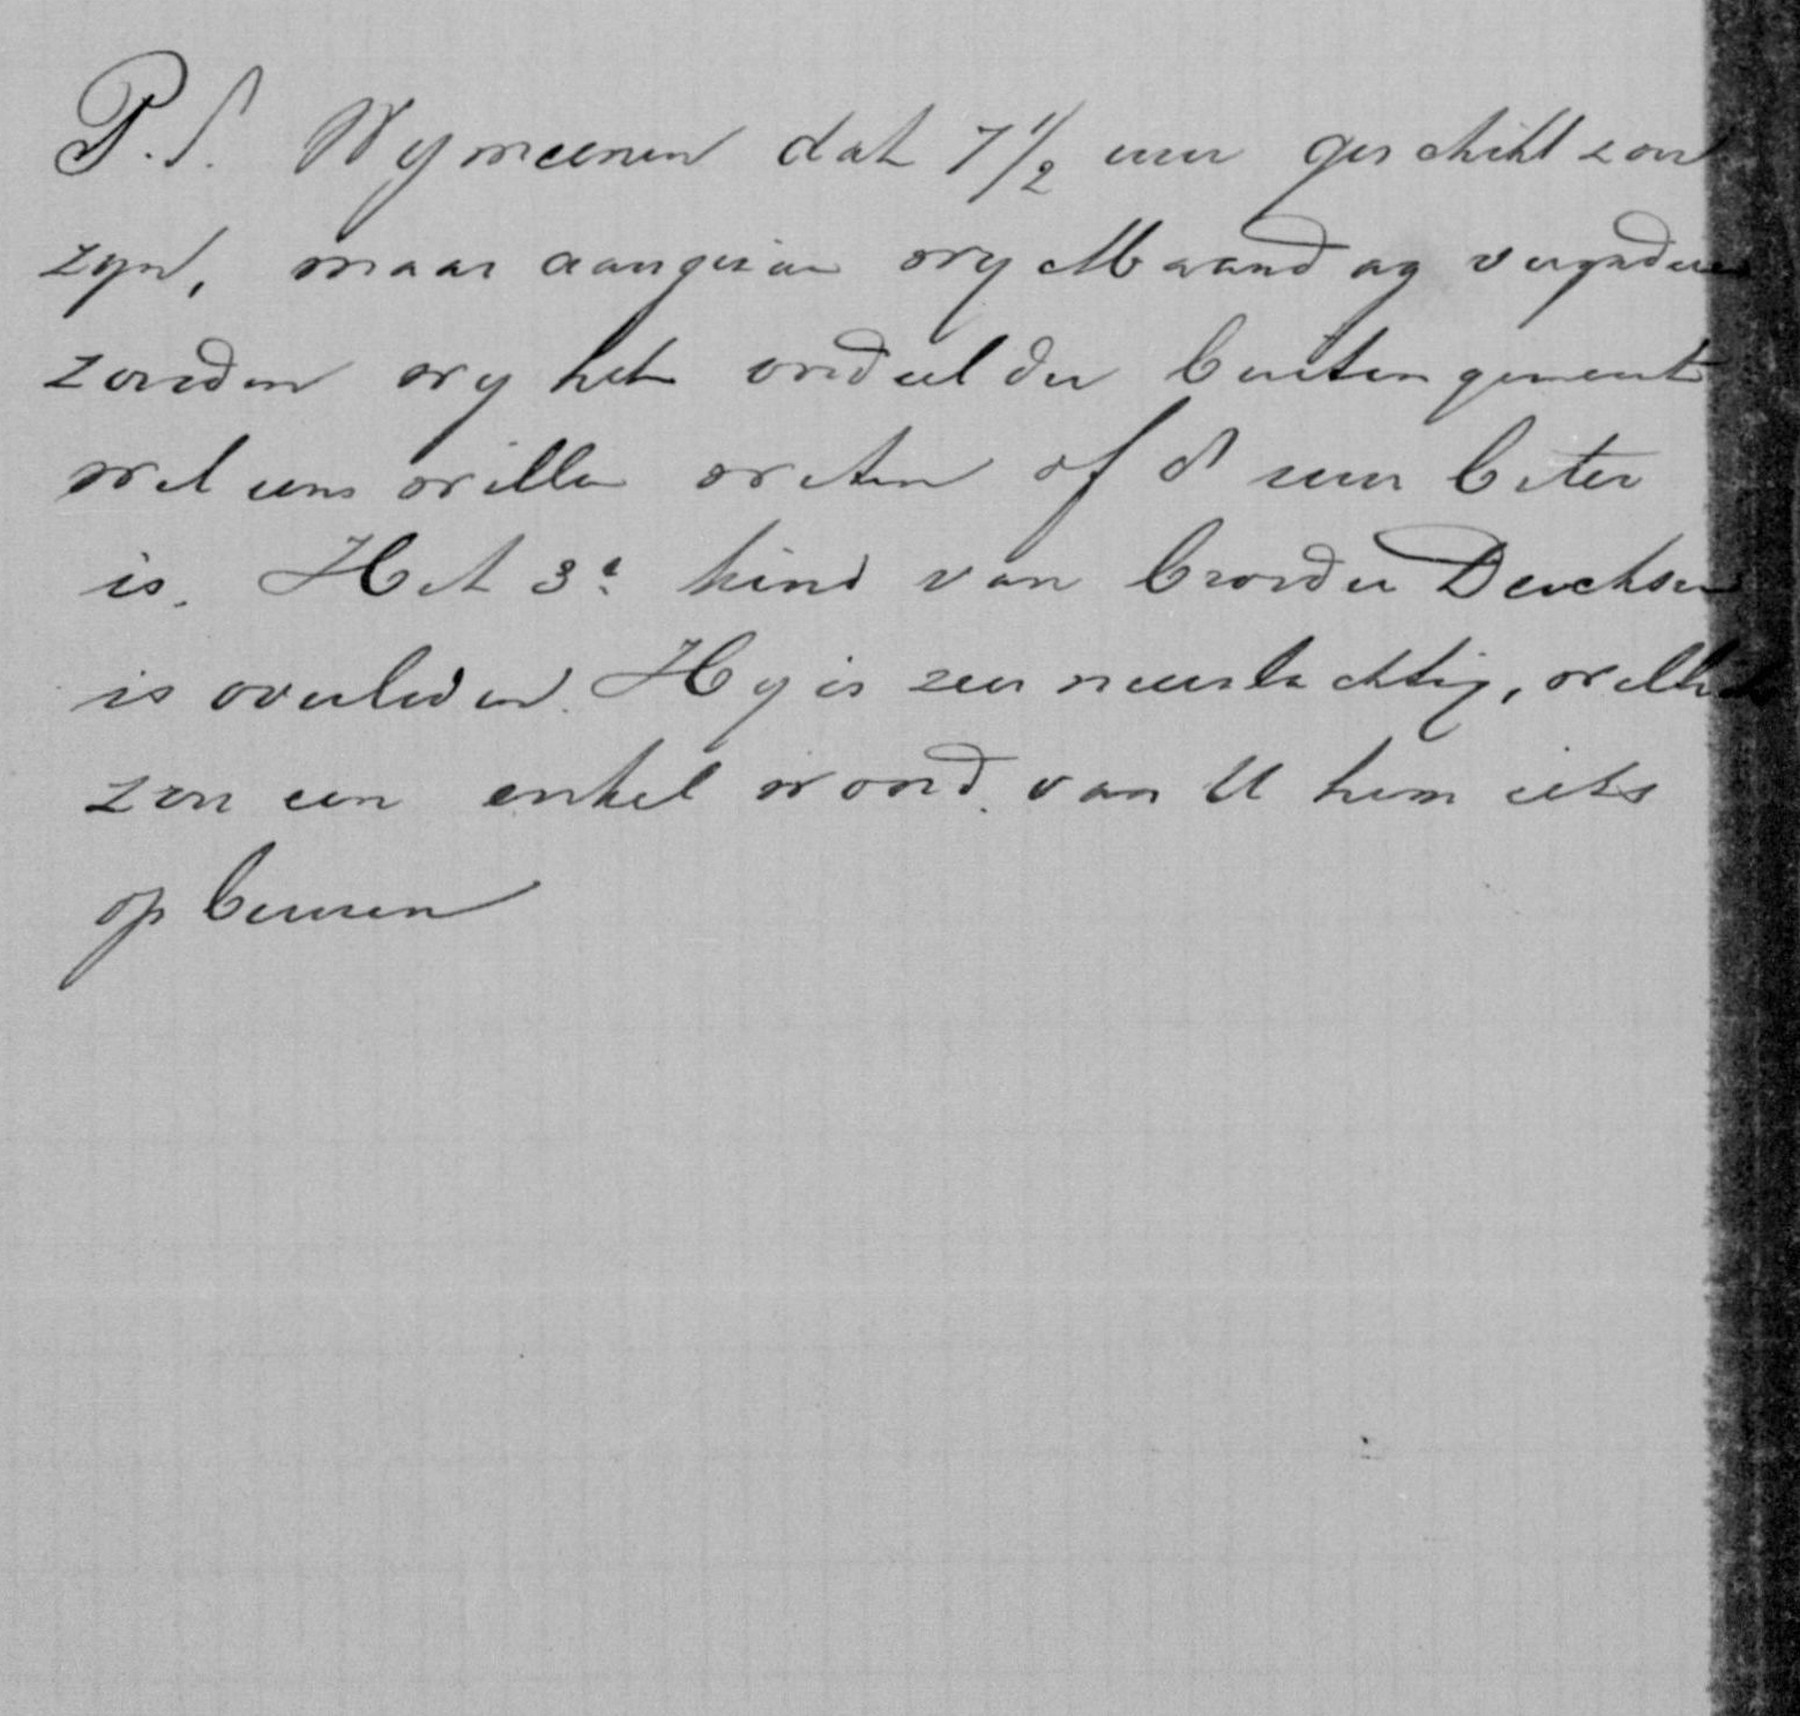 P.S. Wy meenen dat 7 1/2 uur geschikt zou
zyn, maar aangezien wy Maandag vergaderen
zouden wy het oordeel der buitengemeent
wel eens willen weten of 8 uur beter
is. Het 3e kind van broeder Derchsen
is overleden. Hy is zeer neerslachtig, wellicht
zou een enkel woord van U hem iets
opbeuren